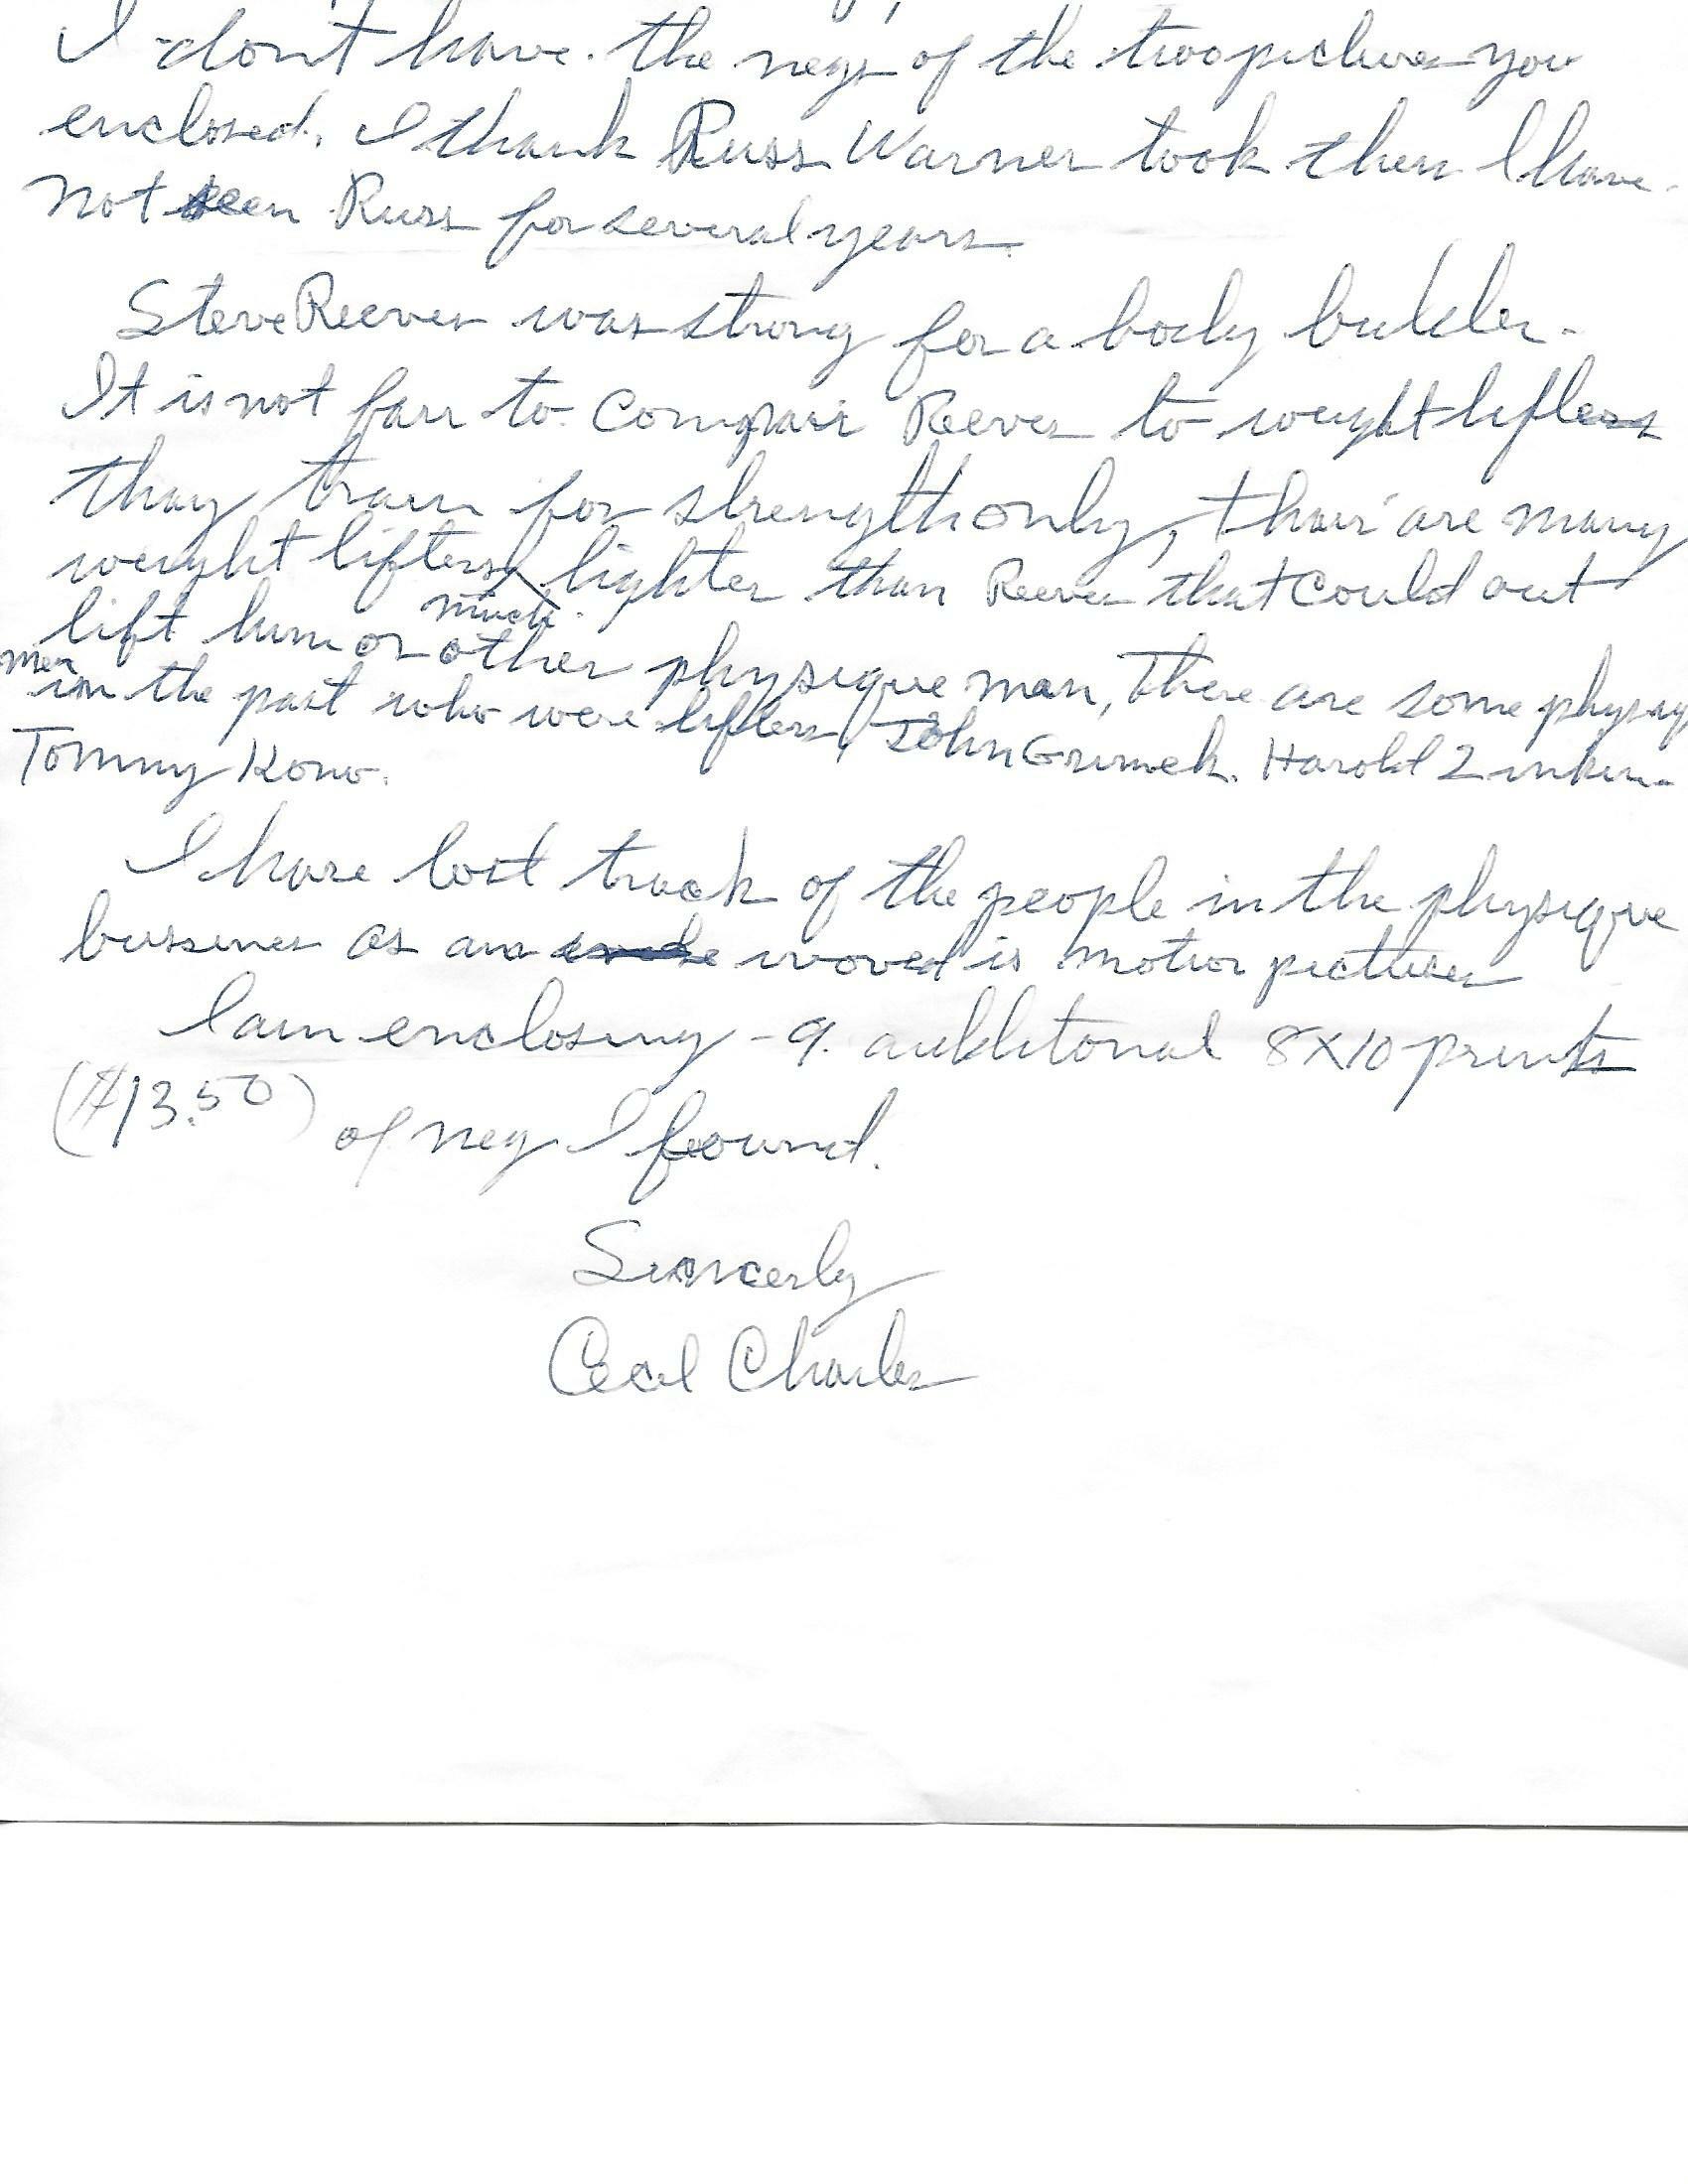 I don't have the negs of the two pictures you
enclosed. I thank Russ Warner took them I have
not seen Russ for several years.
Steve Reeves was strong for a body builder.
It is not fair to compair Reeves to weight lifters
thay train for strength only, thair are many
weight lifters much lighter than Reeves that could out
lift him or other physique man, There are some physiq
men in the past who were lifters, John Grimek. Harold Zinkin.
Tommy Kono.
I have lost track of the people in the physique
bussines as am woved is motion pictures
I am enclosing - 9. additonal 8X10 prints
($13.50) of neg I found.
Sincerly
Cecil Charles